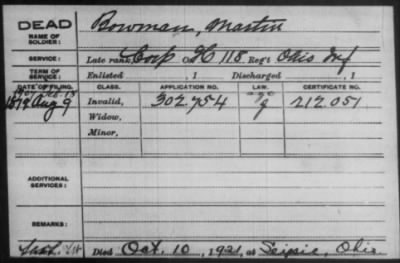 DEAD
NAME OF SOLDIER: Bowman, Martin
SERVICE: Late rank, Corp Co. H 118 Reg't Ohio Inf
TERM OF SERVICE: Enlisted , 1 Discharged , 1
DATE OF FILING. CLASS. APPLICATION NO. LAW. CERTIFICATE NO.
1879 Aug 9 Invalid, 302.754 g 212.051
Widow,
Minor,
ADDITIONAL SERVICES:
REMARKS:
Died Oct. 10, 1921, at Leipsic, Ohio.